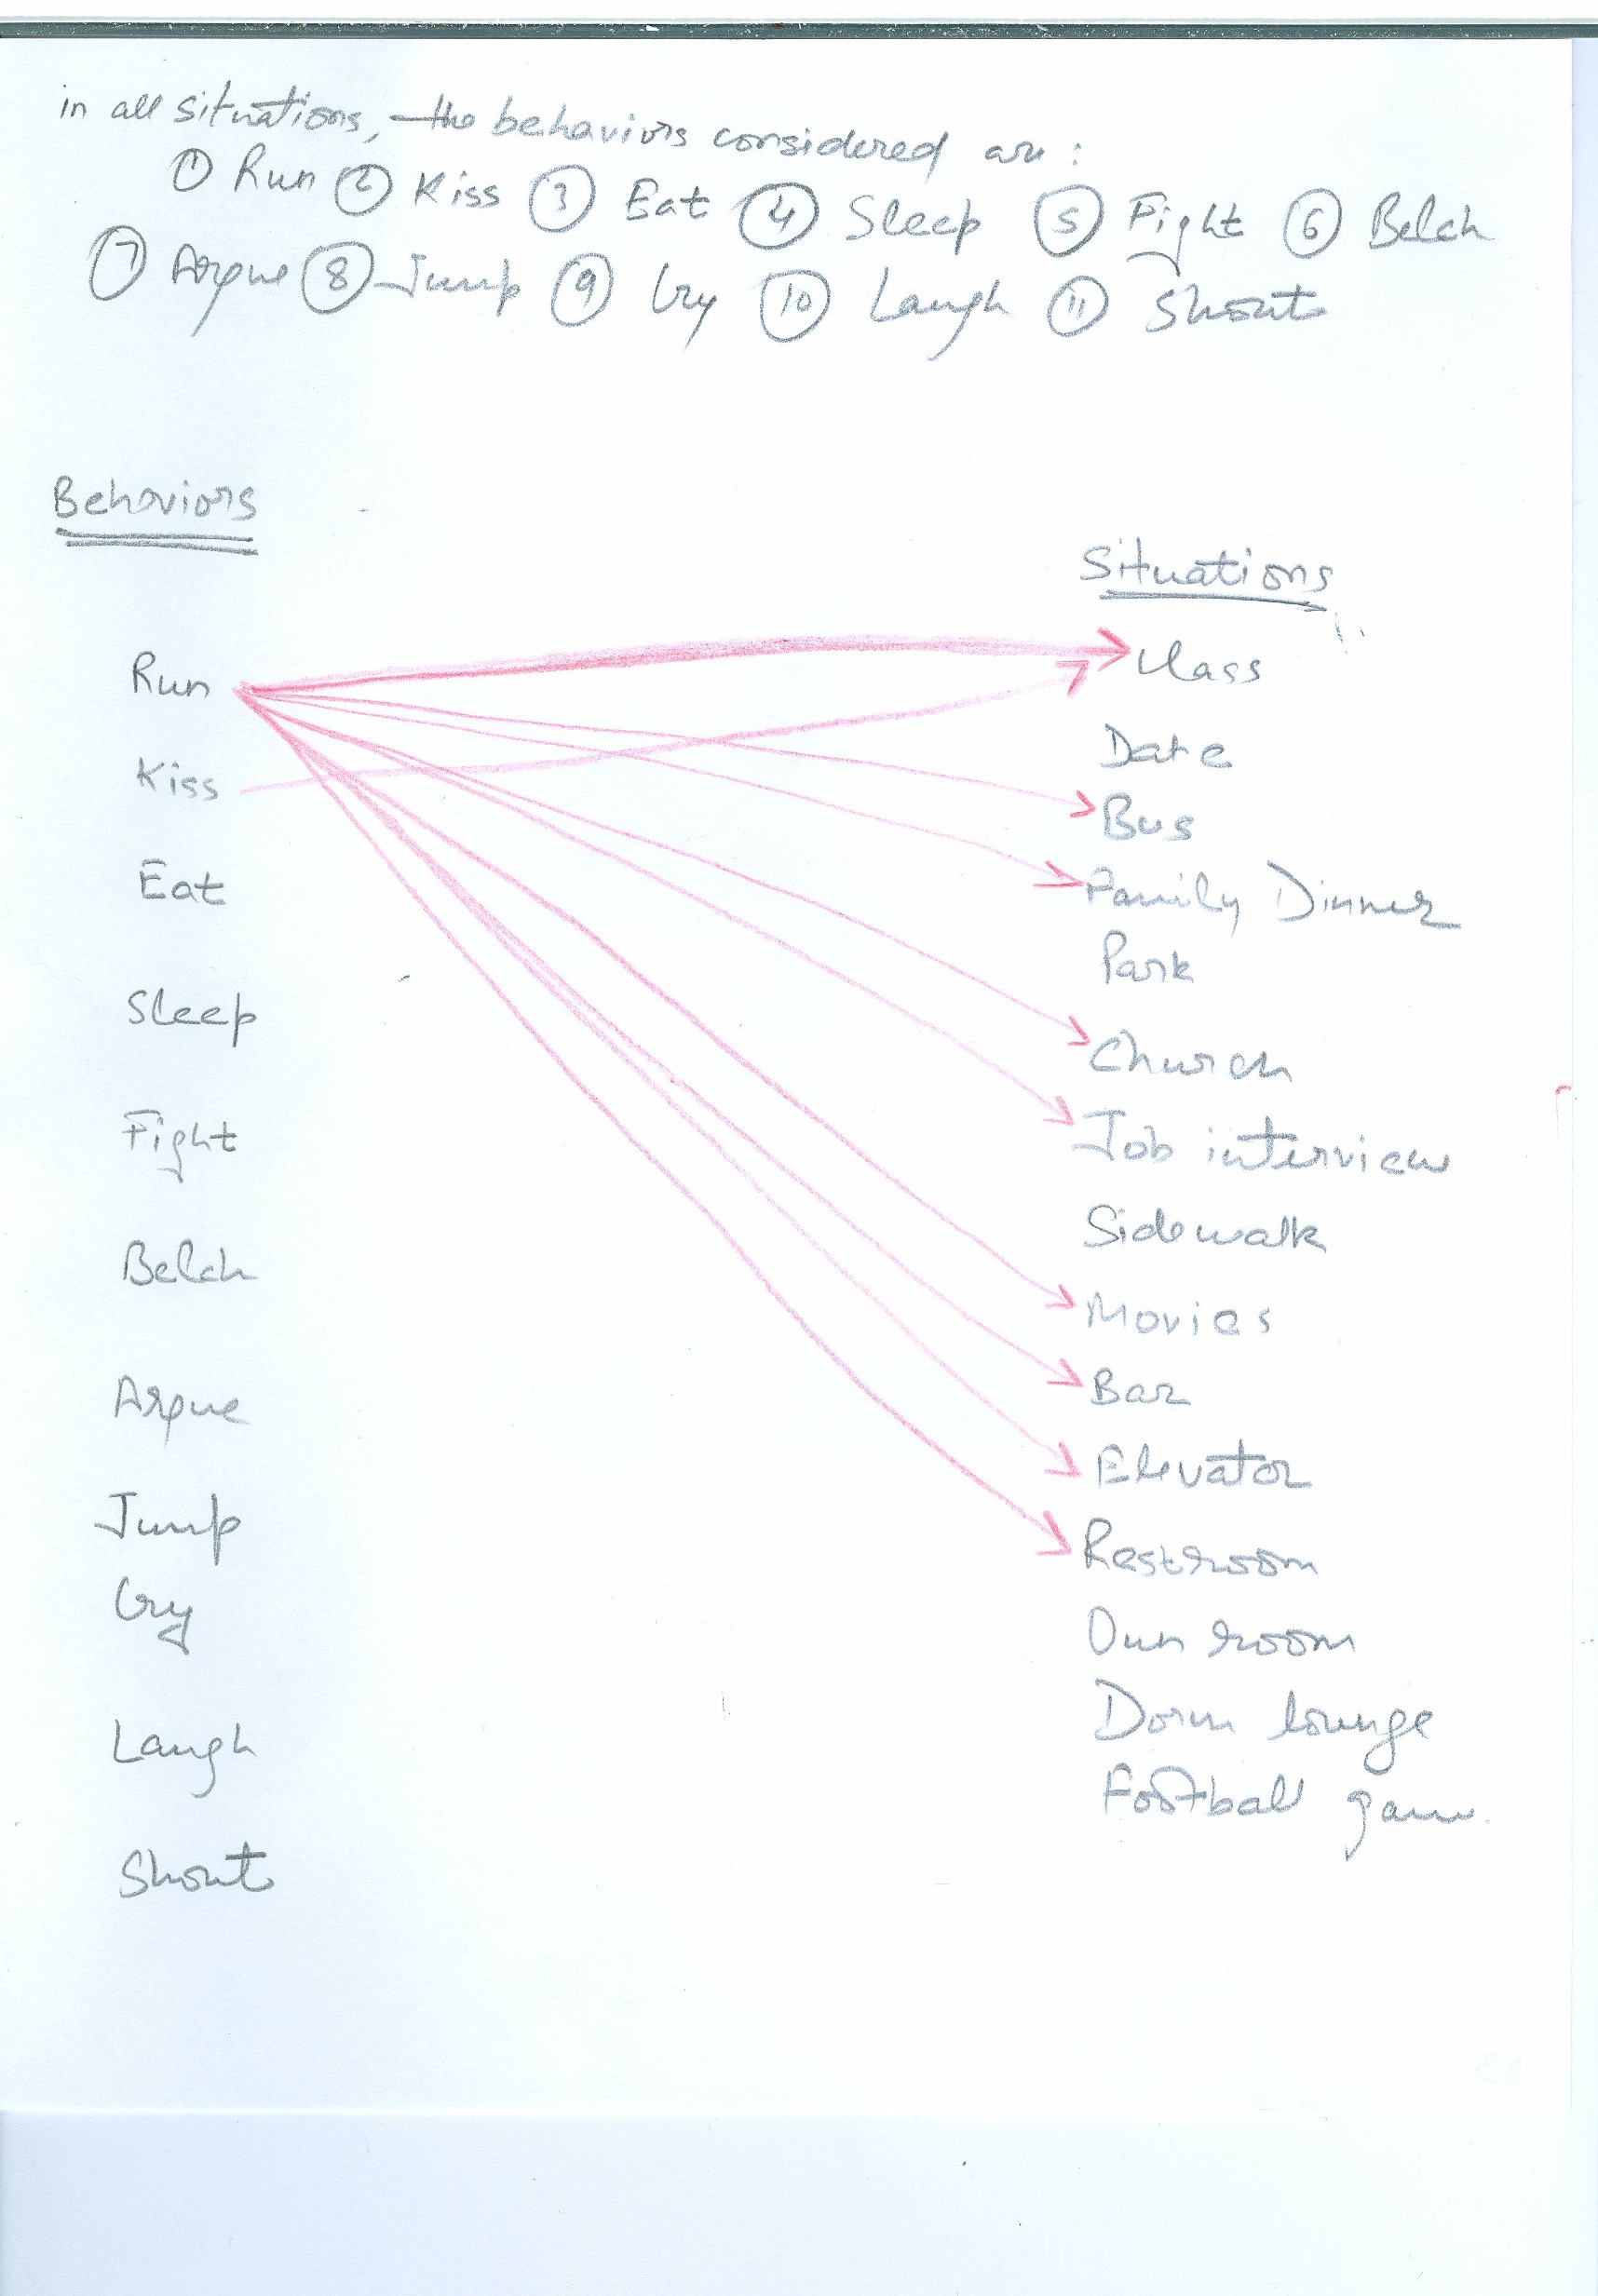 in all situations, the behaviors considered are:
① Run ② Kiss ③ Eat ④ Sleep ⑤ Fight ⑥ Belch
⑦ Argue ⑧ Jump ⑨ Cry ⑩ Laugh ⑪ Shout
Behaviors
Situations
Run
Class
Kiss
Date
Bus
Eat
Family Dinner
Park
Sleep
Church
Fight
Job interview
Sidewalk
Belch
Movies
Argue
Bar
Elevator
Jump
Restroom
Cry
Own room
Laugh
Dorm lounge
Football game.
Shout